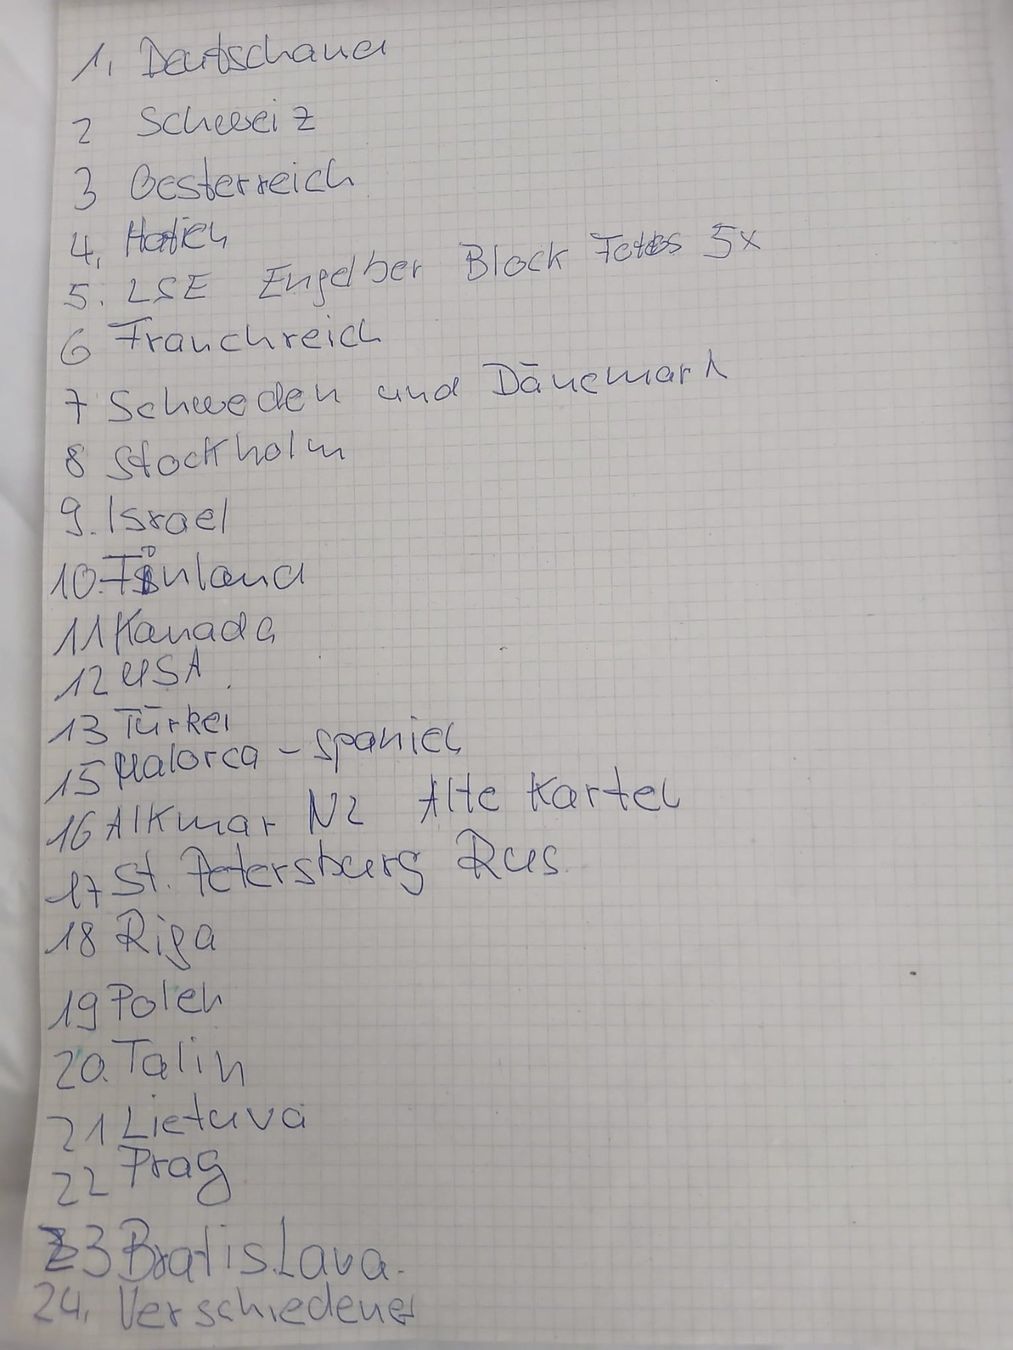 1. Deutschand
2 Schweiz
3 Oesterreich
4.
5. LSE Engelber Block Fotos 5x
6 Franchreich
7 Schweden und Dänemark
8 Stockholm
9. Israel
10. Finland
11 Kanada
12 USA.
13 Türkei
15 Malorca - Spanien
16 Alkmar Alte Karten
17 St. Petersburg Rus.
18 Riga
19 Polen
20. Talin
21 Lietuva
22 Prag
23 Bratislava.
24. Verschiedene